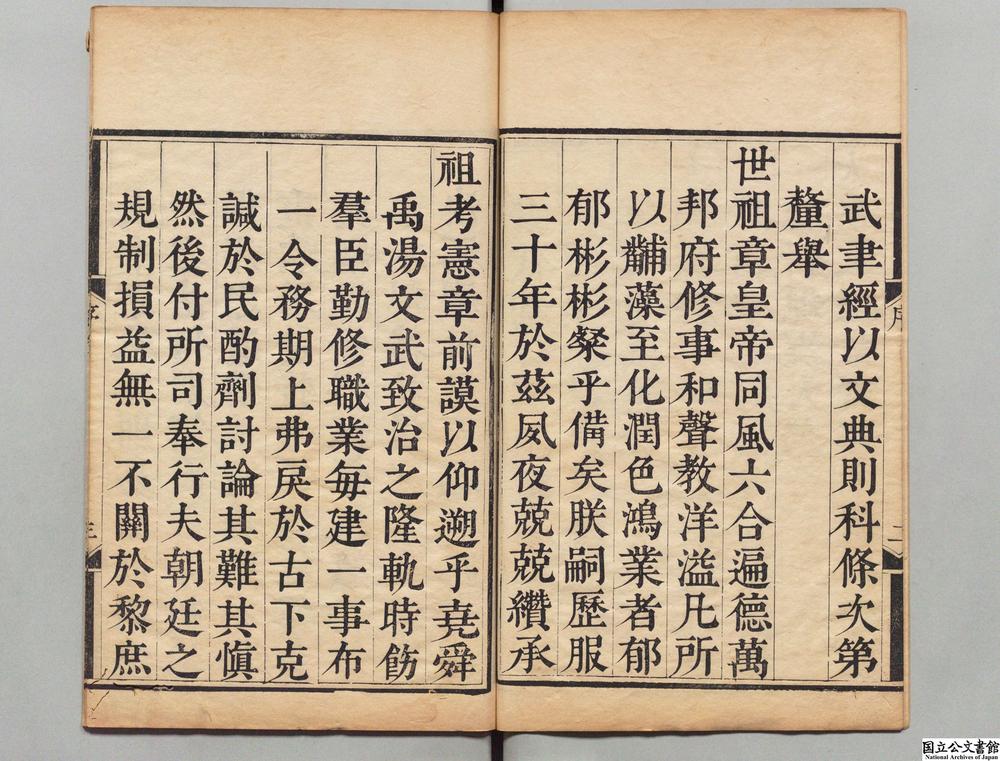 武聿經以文典則科條次第
釐舉
世祖章皇帝同風六合遍德萬
邦府修事和聲教洋溢凡所
以黼藻至化潤色鴻業者郁
郁彬彬粲乎備矣朕嗣歷服
三十年於茲夙夜兢兢纘承
祖考憲章前謨以仰遡乎堯舜
禹湯文武致治之隆軌時飭
羣臣勤修職業毎建一事布
一令務期上弗戾於古下克
諴於民酌劑討論其難其慎
然後付所司奉行夫朝廷之
規制損益無一不關於黎庶
序
二
三
国立公文書館
National Archives of Japan